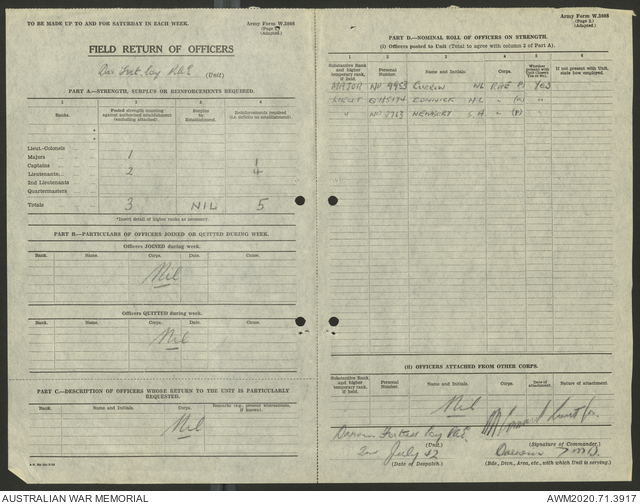 TO BE MADE UP TO AND FOR SATURDAY IN EACH WEEK.
Army Form W.3008
(Adapted.)
FIELD RETURN OF OFFICERS
Fort Coy RAE (Unit)
PART A.—STRENGTH, SURPLUS OR REINFORCEMENTS REQUIRED.
1 2 3
Ranks. Posted strength counting against authorized establishment (excluding attached). Surplus to Establishment. Reinforcements required (i.e. deficits on establishment).
Lieut.-Colonels
Majors 1
Captains 1
Lieutenants 2 4
2nd Lieutenants
Quartermasters
Totals 3 NIL 5
*Insert detail of higher ranks as necessary.
PART B.—PARTICULARS OF OFFICERS JOINED OR QUITTED DURING WEEK.
Officers JOINED during week.
Rank. Name. Corps. Date. Cause.
Nil
Officers QUITTED during week.
Rank. Name. Corps. Date. Cause.
Nil
PART C.—DESCRIPTION OF OFFICERS WHOSE RETURN TO THE UNIT IS PARTICULARLY REQUESTED.
Rank. Name and Initials. Corps. Remarks (e.g. present whereabouts, if known).
Nil
Army Form W.3008
(Page 2.)
(Adapted.)
PART D.—NOMINAL ROLL OF OFFICERS ON STRENGTH.
(I) Officers posted to Unit (Total to agree with column 2 of Part A).
1 2 3 4 5 6
Substantive Rank and higher temporary rank, if held. Personal Number. Name and Initials. Corps. Whether present with Unit (insert Yes or No). If not present with Unit, state how employed.
MAJOR RAE YES
(II) OFFICERS ATTACHED FROM OTHER CORPS.
Substantive Rank and higher temporary rank, if held. Personal Number. Name and Initials. Corps. Date of attachment. Nature of attachment.
Nil
Darwin Fortress Coy RAE
(Unit)
(Signature of Commander.)
2nd July 42
(Date of Despatch.)
Darwin 7 M.D.
(Bde., Dvn., Area, etc., with which Unit is serving.)
AUSTRALIAN WAR MEMORIAL
AWM2020.71.3917